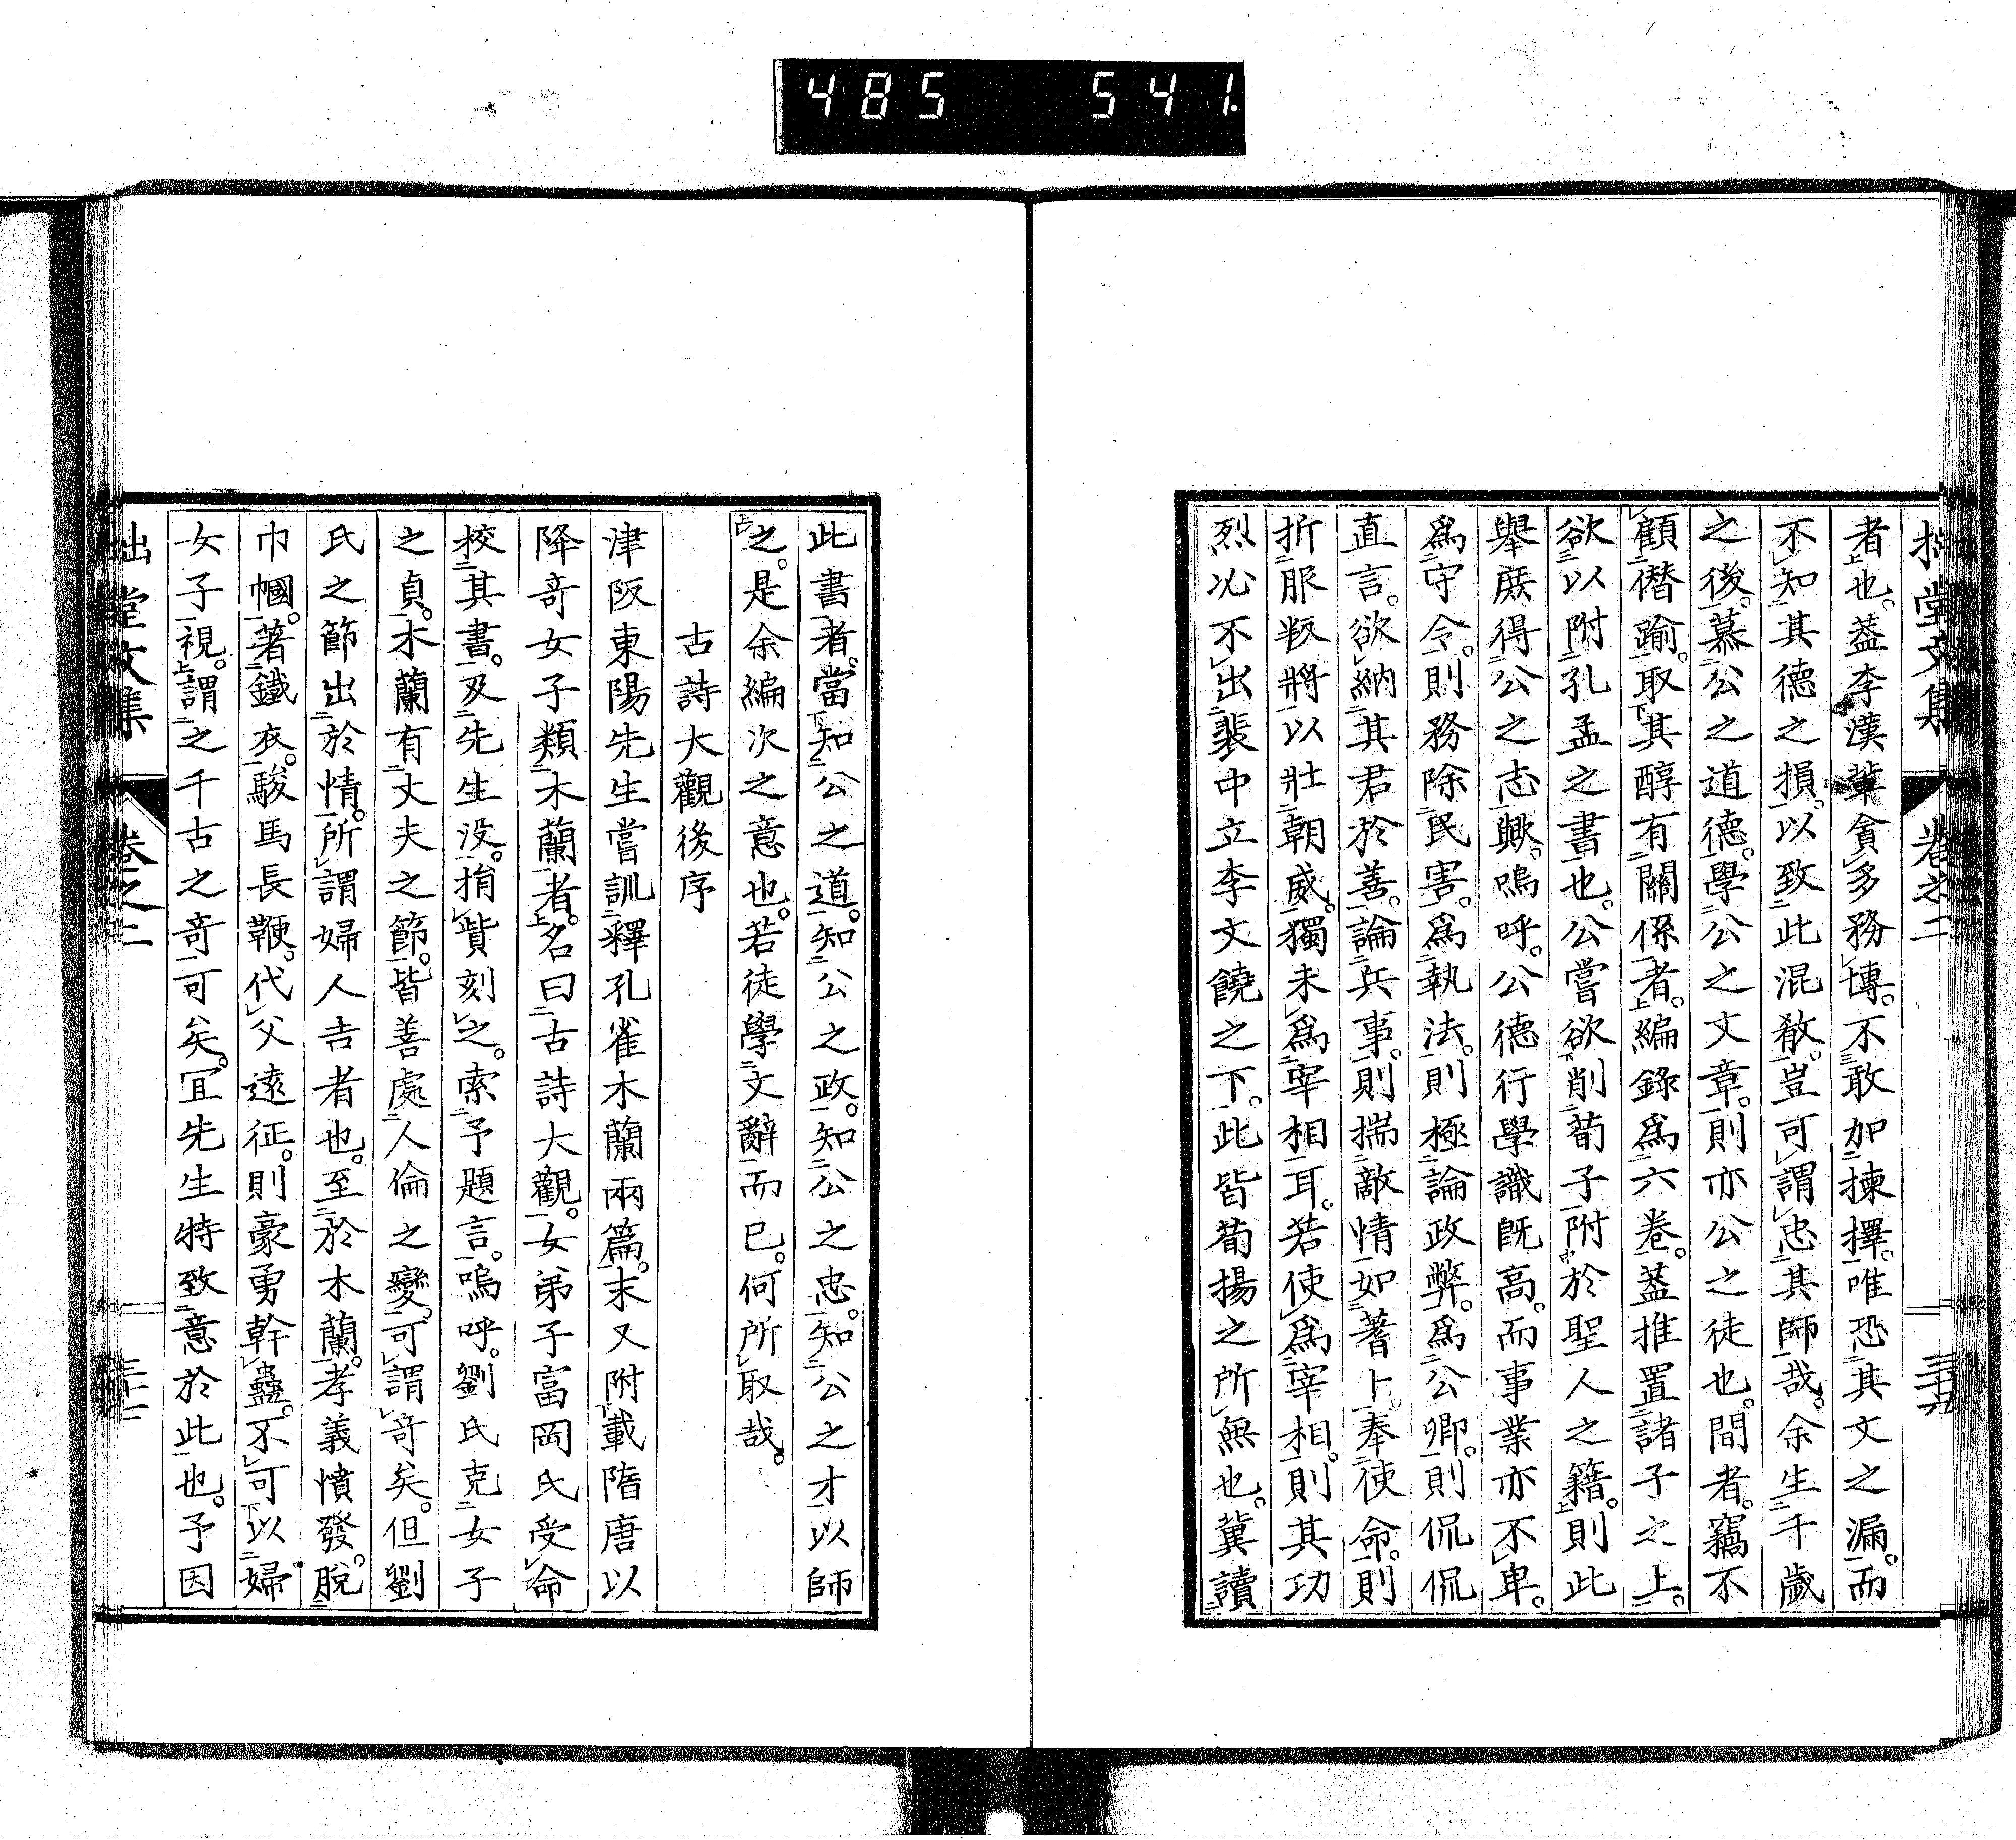 485 541.
者也。蓋李漢輩貪多務博。不敢加揀擇。唯恐其文之漏。而
不知其德之損。以致此混殽。豈可謂忠其師哉。余生千歲
之後。慕公之道德。學公之文章。則亦公之徒也。間者。竊不
顧僭踰。取其醇有關係者。編錄爲六卷。蓋推置諸子之上。
欲以附孔孟之書也。公嘗欲削荀子附於聖人之籍。則此
舉庶得公之志歟。嗚呼。公德行學識旣高。而事業亦不卑。
爲守令。則務除民害。爲執法。則極論政弊。爲公卿。則侃侃
直言。欲納其君於善。論兵事。則揣敵情如蓍卜。奉使命。則
折服叛將以壯朝威。獨未爲宰相耳。若使爲宰相。則其功
烈必不出裴中立李文饒之下。此皆荀揚之所無也。冀讀
此書者。當知公之道。知公之政。知公之忠。知公之才以師
之。是余編次之意也。若徒學文辭而已。何所取哉。
古詩大觀後序
津阪東陽先生嘗訓釋孔雀木蘭兩篇。末又附載隋唐以
降奇女子類木蘭者。名曰古詩大觀。女弟子富岡氏受命
校其書。及先生没。捐貲刻之。索予題言。嗚呼。劉氏克女子
之貞。木蘭有丈夫之節。皆善處人倫之變。可謂奇矣。但劉
氏之節出於情。所謂婦人吉者也。至於木蘭。孝義憤發。脫
巾幗。著鐵衣。駿馬長鞭。代父遠征。則豪勇幹蠱。不可以婦
女子視。謂之千古之奇可矣。宜先生特致意於此也。予因
拙堂文集 卷之二